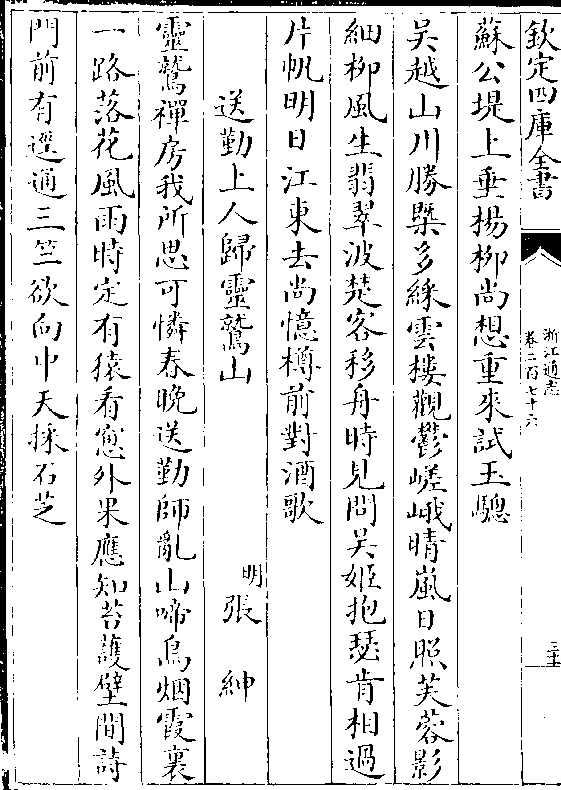 欽定四庫全書
浙江通志
卷二百七十六
三十
蘇公堤上垂楊柳尚想重來試玉驄
吳越山川勝槩多綵雲樓觀鬱嵯峨晴嵐日照芙蓉影
細柳風生翡翠波楚客移舟時見問吳姬抱瑟肯相過
片帆明日江東去尚憶樽前對酒歌
送勤上人歸靈鷲山
明張紳
靈鷲禪房我所思可憐春晚送勤師亂山啼鳥烟霞裏
一路落花風雨時定有猿看窻外果應知苔護壁間詩
門前有逕通三竺欲向中天採石芝